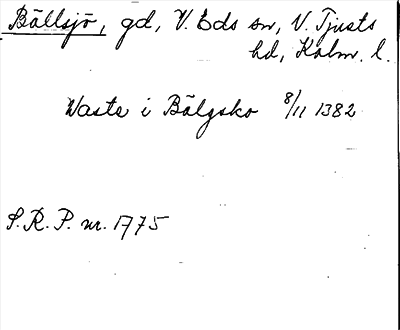 Bällsjö, gd, V. Eds sn, N. Tjusts
hd, Kalm. l.
Waste i Bälgsko 8/11 1382
S.R.P. nr. 1775